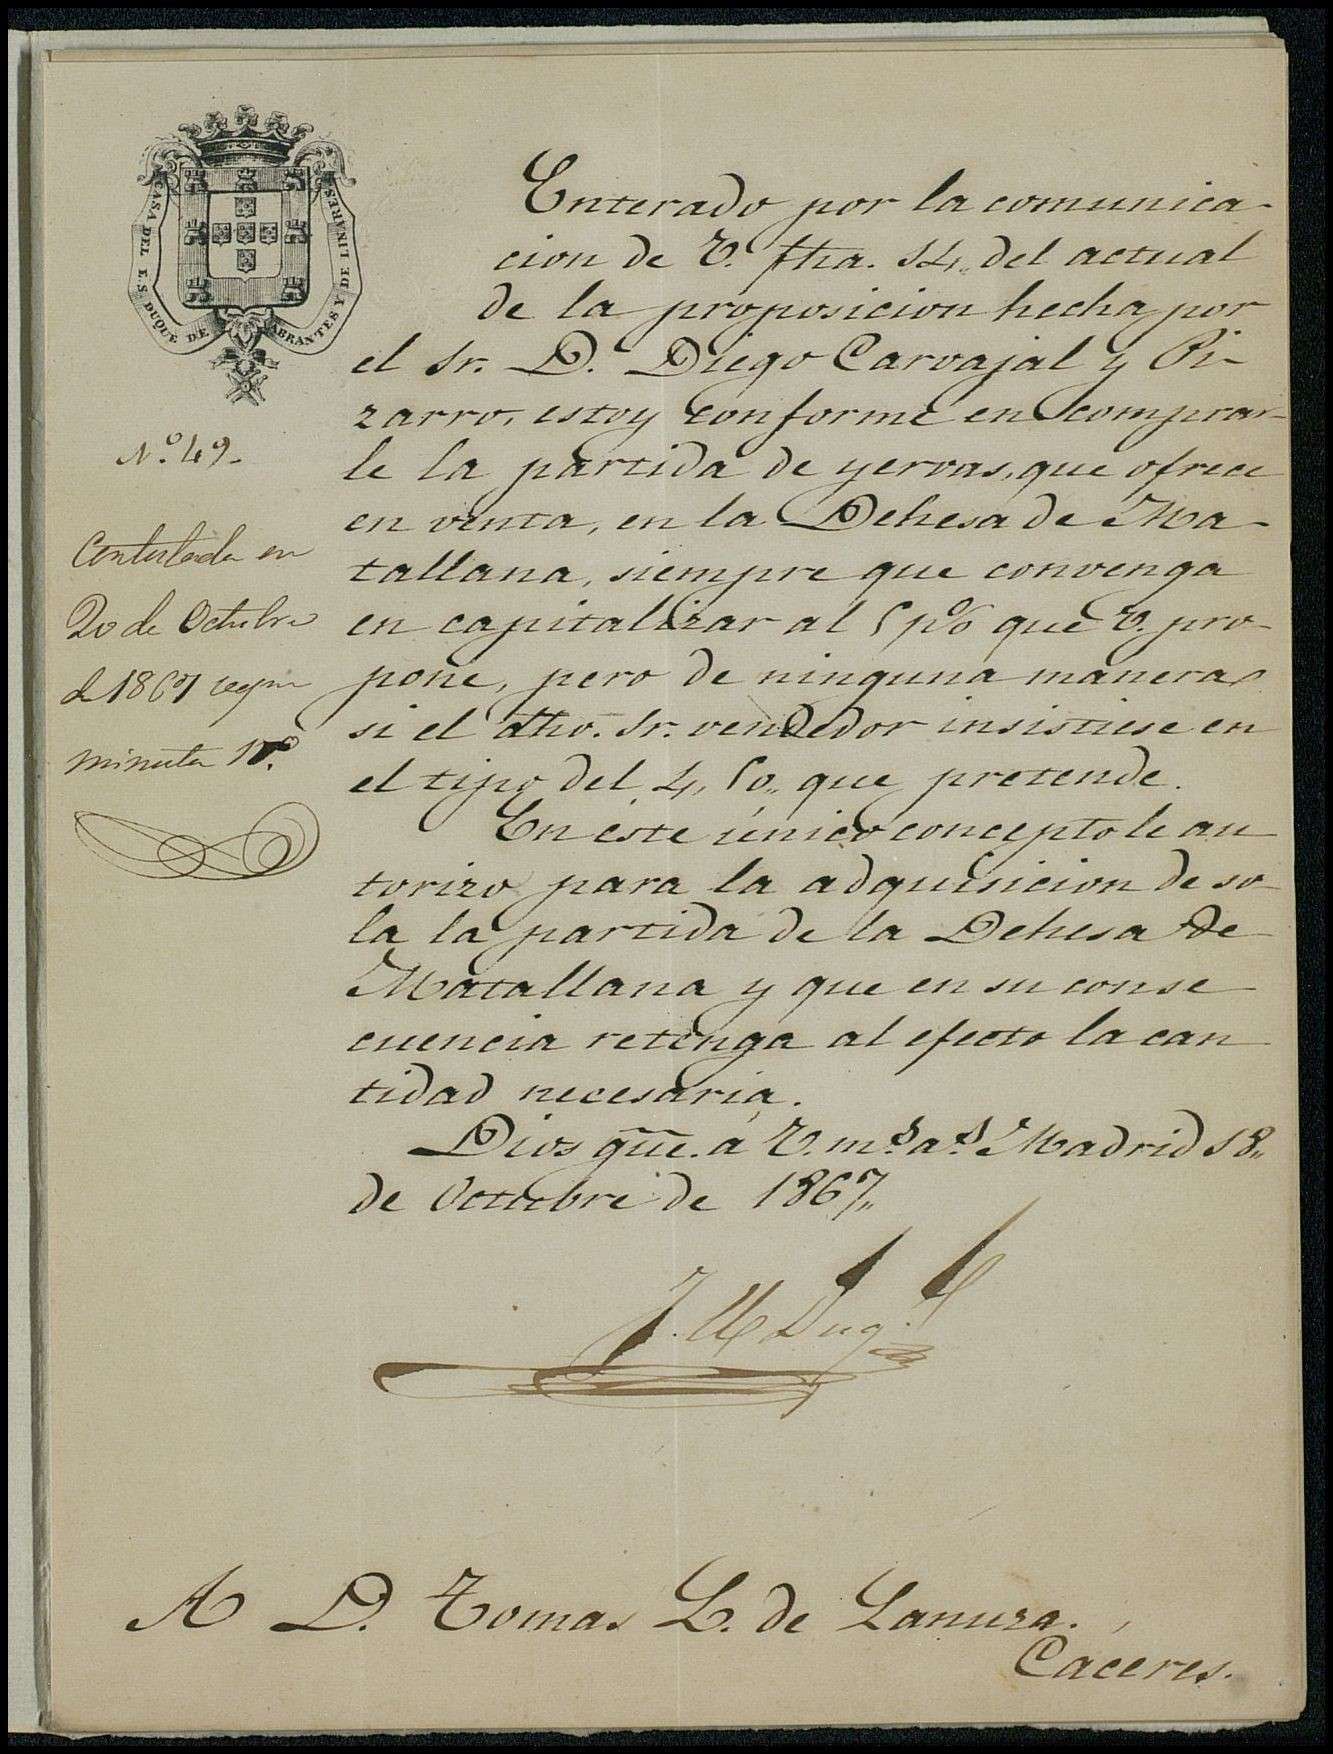 CASA DEL E.S. DUQUE DE ABRANTES Y DE LINARES
Enterado por la comunica-
cion de V. fha. 14,, del actual
de la proposicion hecha por
el Sr. D. Diego Carvajal y Pi-
zarro, estoy conforme en comprar-
le la partida de yervas, que ofrece
en venta, en la Dehesa de Ma-
tallana, siempre que convenga
en capitalizar al 5 p% que V. pro-
pone, pero de ninguna manera
si el dho. Sr. vendedor insistiese en
el tipo del 4,50,, que pretende.
En éste único concepto le au
torizo para la adquisicion de so-
la la partida de la Dehesa de
Matallana y que en su conse
cuencia retenga al efecto la can
tidad necesaria.
Dios gũe. á V. m.s a.s Madrid 18,,
de Octubre de 1867,,
Nº. 49.
Contestada en
20 de Octubre
de 1867 segun
minuta
A D. Tomas L. de Lanuza.
Caceres.